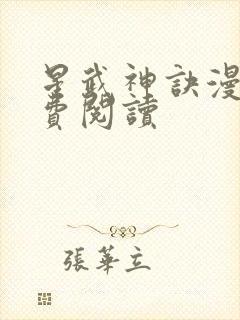 星武神訣漫
費閱讀
張華立